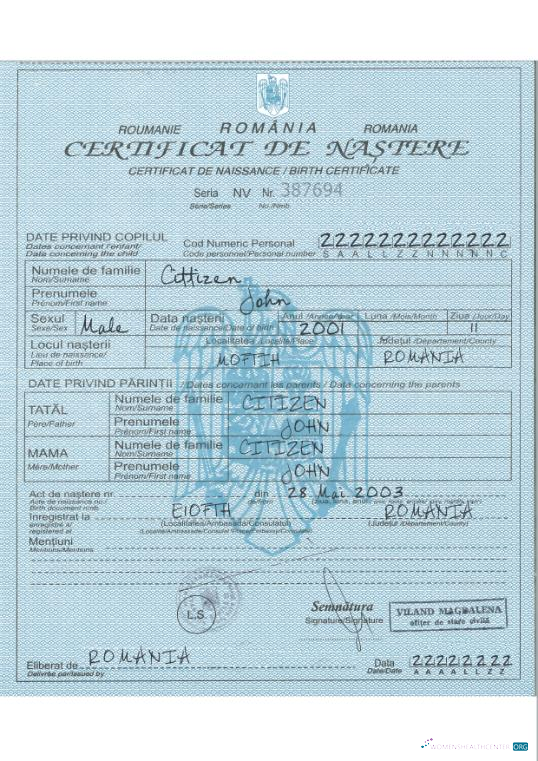 ROUMANIE ROMÂNIA ROMANIA
CERTIFICAT DE NAȘTERE
CERTIFICAT DE NAISSANCE / BIRTH CERTIFICATE
Seria NV Nr. 387694
Série/Series No./Numb
DATE PRIVIND COPILUL
Date concernant l'enfant/
Data concerning the child
Cod Numeric Personal 2222222222222
Code personnel/Personal number S A A L L Z Z N N N N N C
Numele de familie Cittizen
Nom/Surname
Prenumele John
Prénom/First name
Sexul Male Data nașterii Anul /Année/Year Luna /Mois/Month Ziua /Jour/Day
Sexe/Sex Date de naissance/Date of birth 2001 11
Locul nașterii Localitatea /Localité/Place Județul /Département/County
Lieu de naissance/ MOFTIH ROMANIA
Place of birth
DATE PRIVIND PĂRINȚII /Dates concernant les parents / Data concerning the parents
TATĂL Numele de familie CITIZEN
Père/Father Nom/Surname
Prenumele JOHN
Prénom/First name
MAMA Numele de familie CITIZEN
Mère/Mother Nom/Surname
Prenumele JOHN
Prénom/First name
Act de naștere nr. din 28 Mai 2003
Birth document numb
Înregistrat la EIOFTH ROMANIA
enregistré à/
registered at
(Localitatea/Ambasada/Consulatul) (Județul /Département/County)
Mențiuni
Mentions/Mentions
L.S.
Semnătura
Signature/Signature
VILAND MAGDALENA
ofițer de stare civilă
Eliberat de ROMANIA
Délivrée par/Issued by
Data 22222222
Date/Date A A A A L L Z Z
WOMENHEALTHCENTER.ORG